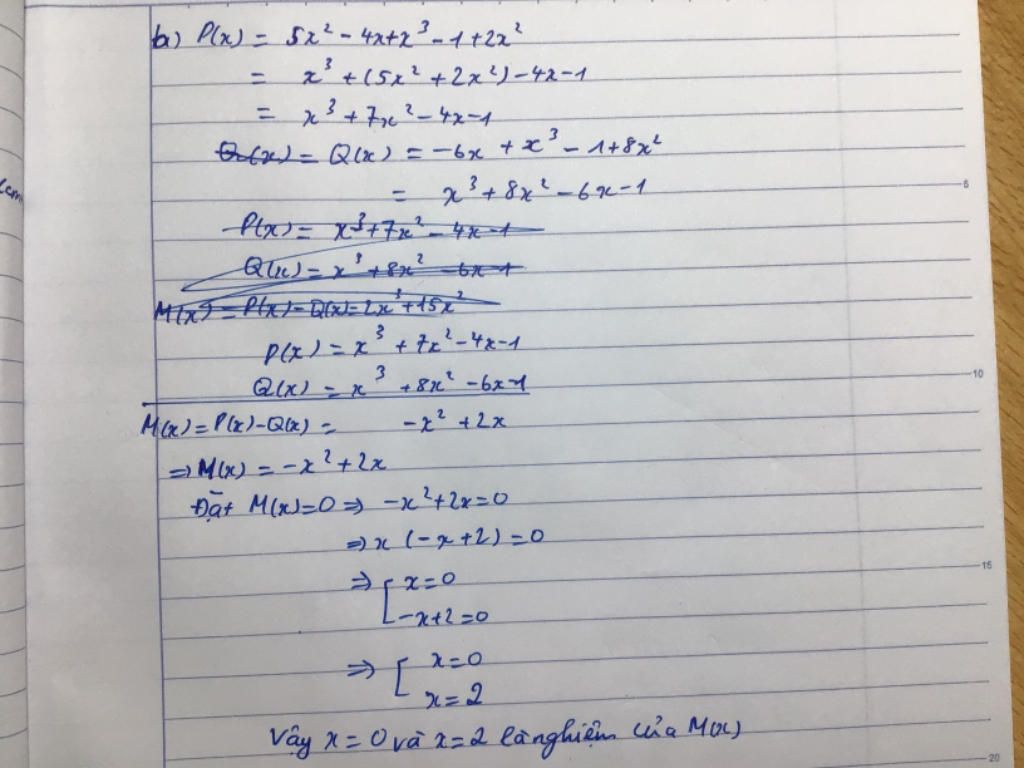 b) P(x) = 5x² - 4x+x³ - 1 + 2x²
= x³ + (5x² + 2x²) - 4x - 1
= x³ + 7x² - 4x - 1
Q(x) = Q(x) = -6x + x³ - 1 + 8x²
= x³ + 8x² - 6x - 1
P(x) = x³ + 7x² - 4x - 1
Q(x) = x³ + 8x² - 6x - 1
M(x) = P(x) - Q(x) = 2x³ + 15x²
P(x) = x³ + 7x² - 4x - 1
Q(x) = x³ + 8x² - 6x - 1
M(x) = P(x) - Q(x) = -x² + 2x
⇒ M(x) = -x² + 2x
Đặt M(x) = 0 ⇒ -x² + 2x = 0
⇒ x (-x + 2) = 0
⇒ [ x = 0
-x + 2 = 0
⇒ [ x = 0
x = 2
Vậy x = 0 và x = 2 là nghiệm của M(x)
5
10
15
20